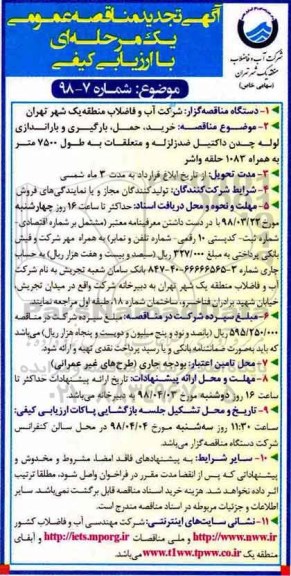 آگهی تجدید مناقصه عمومی
یک مرحله‌ای
با ارزیابی کیفی
شرکت آب و فاضلاب
منطقه یک شهر تهران
(سهامی خاص)
موضوع: شماره ۷-۹۸
۱- دستگاه مناقصه‌گزار: شرکت آب و فاضلاب منطقه یک شهر تهران
۲- موضوع مناقصه: خرید، حمل، بارگیری و باراندازی
لوله چدن داکتیل ضدزلزله و متعلقات به طول ۷۵۰۰ متر
به همراه ۱۰۸۳ حلقه واشر
۳- مدت تحویل: از تاریخ ابلاغ قرارداد به مدت ۳ ماه شمسی
۴- شرایط شرکت‌کنندگان: تولیدکنندگان مجاز و یا نمایندگی‌های فروش
۵- مهلت و نحوه و محل دریافت اسناد: حداکثر تا ساعت ۱۶ روز چهارشنبه
مورخ ۹۸/۰۳/۲۲ با در دست داشتن معرفینامه معتبر (مشتمل بر شماره اقتصادی-
شماره ثبت- کدپستی ۱۰ رقمی- شماره تلفن و نمابر) به همراه مهر شرکت و فیش
بانکی پرداختی به مبلغ ۳۳۷/۰۰۰ ریال (سیصد و بیست و هفت هزار ریال) به حساب
جاری شماره ۳-۶۶۶۶۶۵۶۵-۴۰-۸۴۷ بانک سامان شعبه تجریش به نام شرکت
آب و فاضلاب منطقه یک شهر تهران به دبیرخانه شرکت واقع در میدان تجریش،
خیابان شهید برادران فناخسرو، ساختمان شماره ۱۸، طبقه اول مراجعه نمایند
۶- مبلغ سپرده شرکت در مناقصه: مبلغ سپرده شرکت در مناقصه
۵۹۵/۲۵۰/۰۰۰ ریال (پانصد و نود و پنج میلیون و دویست و پنجاه هزار ریال) می‌باشد
که باید به‌صورت ضمانتنامه بانکی و یا رسید پرداخت نقدی تهیه و ارائه شود.
۷- محل تامین اعتبار: بودجه جاری (طرح‌های غیر عمرانی)
۸- مهلت و محل ارائه پیشنهادات: تاریخ ارائه پیشنهادات حداکثر تا
ساعت ۱۶ روز دوشنبه مورخ ۹۸/۰۴/۰۳ به دبیرخانه می‌باشد.
۹- تاریخ و محل تشکیل جلسه بازگشایی پاکات ارزیابی کیفی:
ساعت ۱۱:۳۰ روز سه‌شنبه مورخ ۹۸/۰۴/۰۴ در محل سالن کنفرانس
شرکت دستگاه مناقصه‌گزار می‌باشد.
۱۰- سایر شرایط: به پیشنهادهای فاقد امضا، مشروط و مخدوش و
پیشنهاداتی که پس از انقضا مدت مقرر در فراخوان واصل شود، مطلقا ترتیب
اثر داده نخواهد شد. هزینه خرید اسناد مناقصه قابل برگشت نمی‌باشد. سایر
اطلاعات و جزئیات مربوطه در اسناد مناقصه مندرج است.
۱۱- نشانی سایت‌های اینترنتی: شرکت مهندسی آب و فاضلاب کشور
http://www.nww.ir و ملی مناقصات http://iets.mporg.ir و آبفای
منطقه یک www.t1ww.tpww.co.ir می‌باشد.